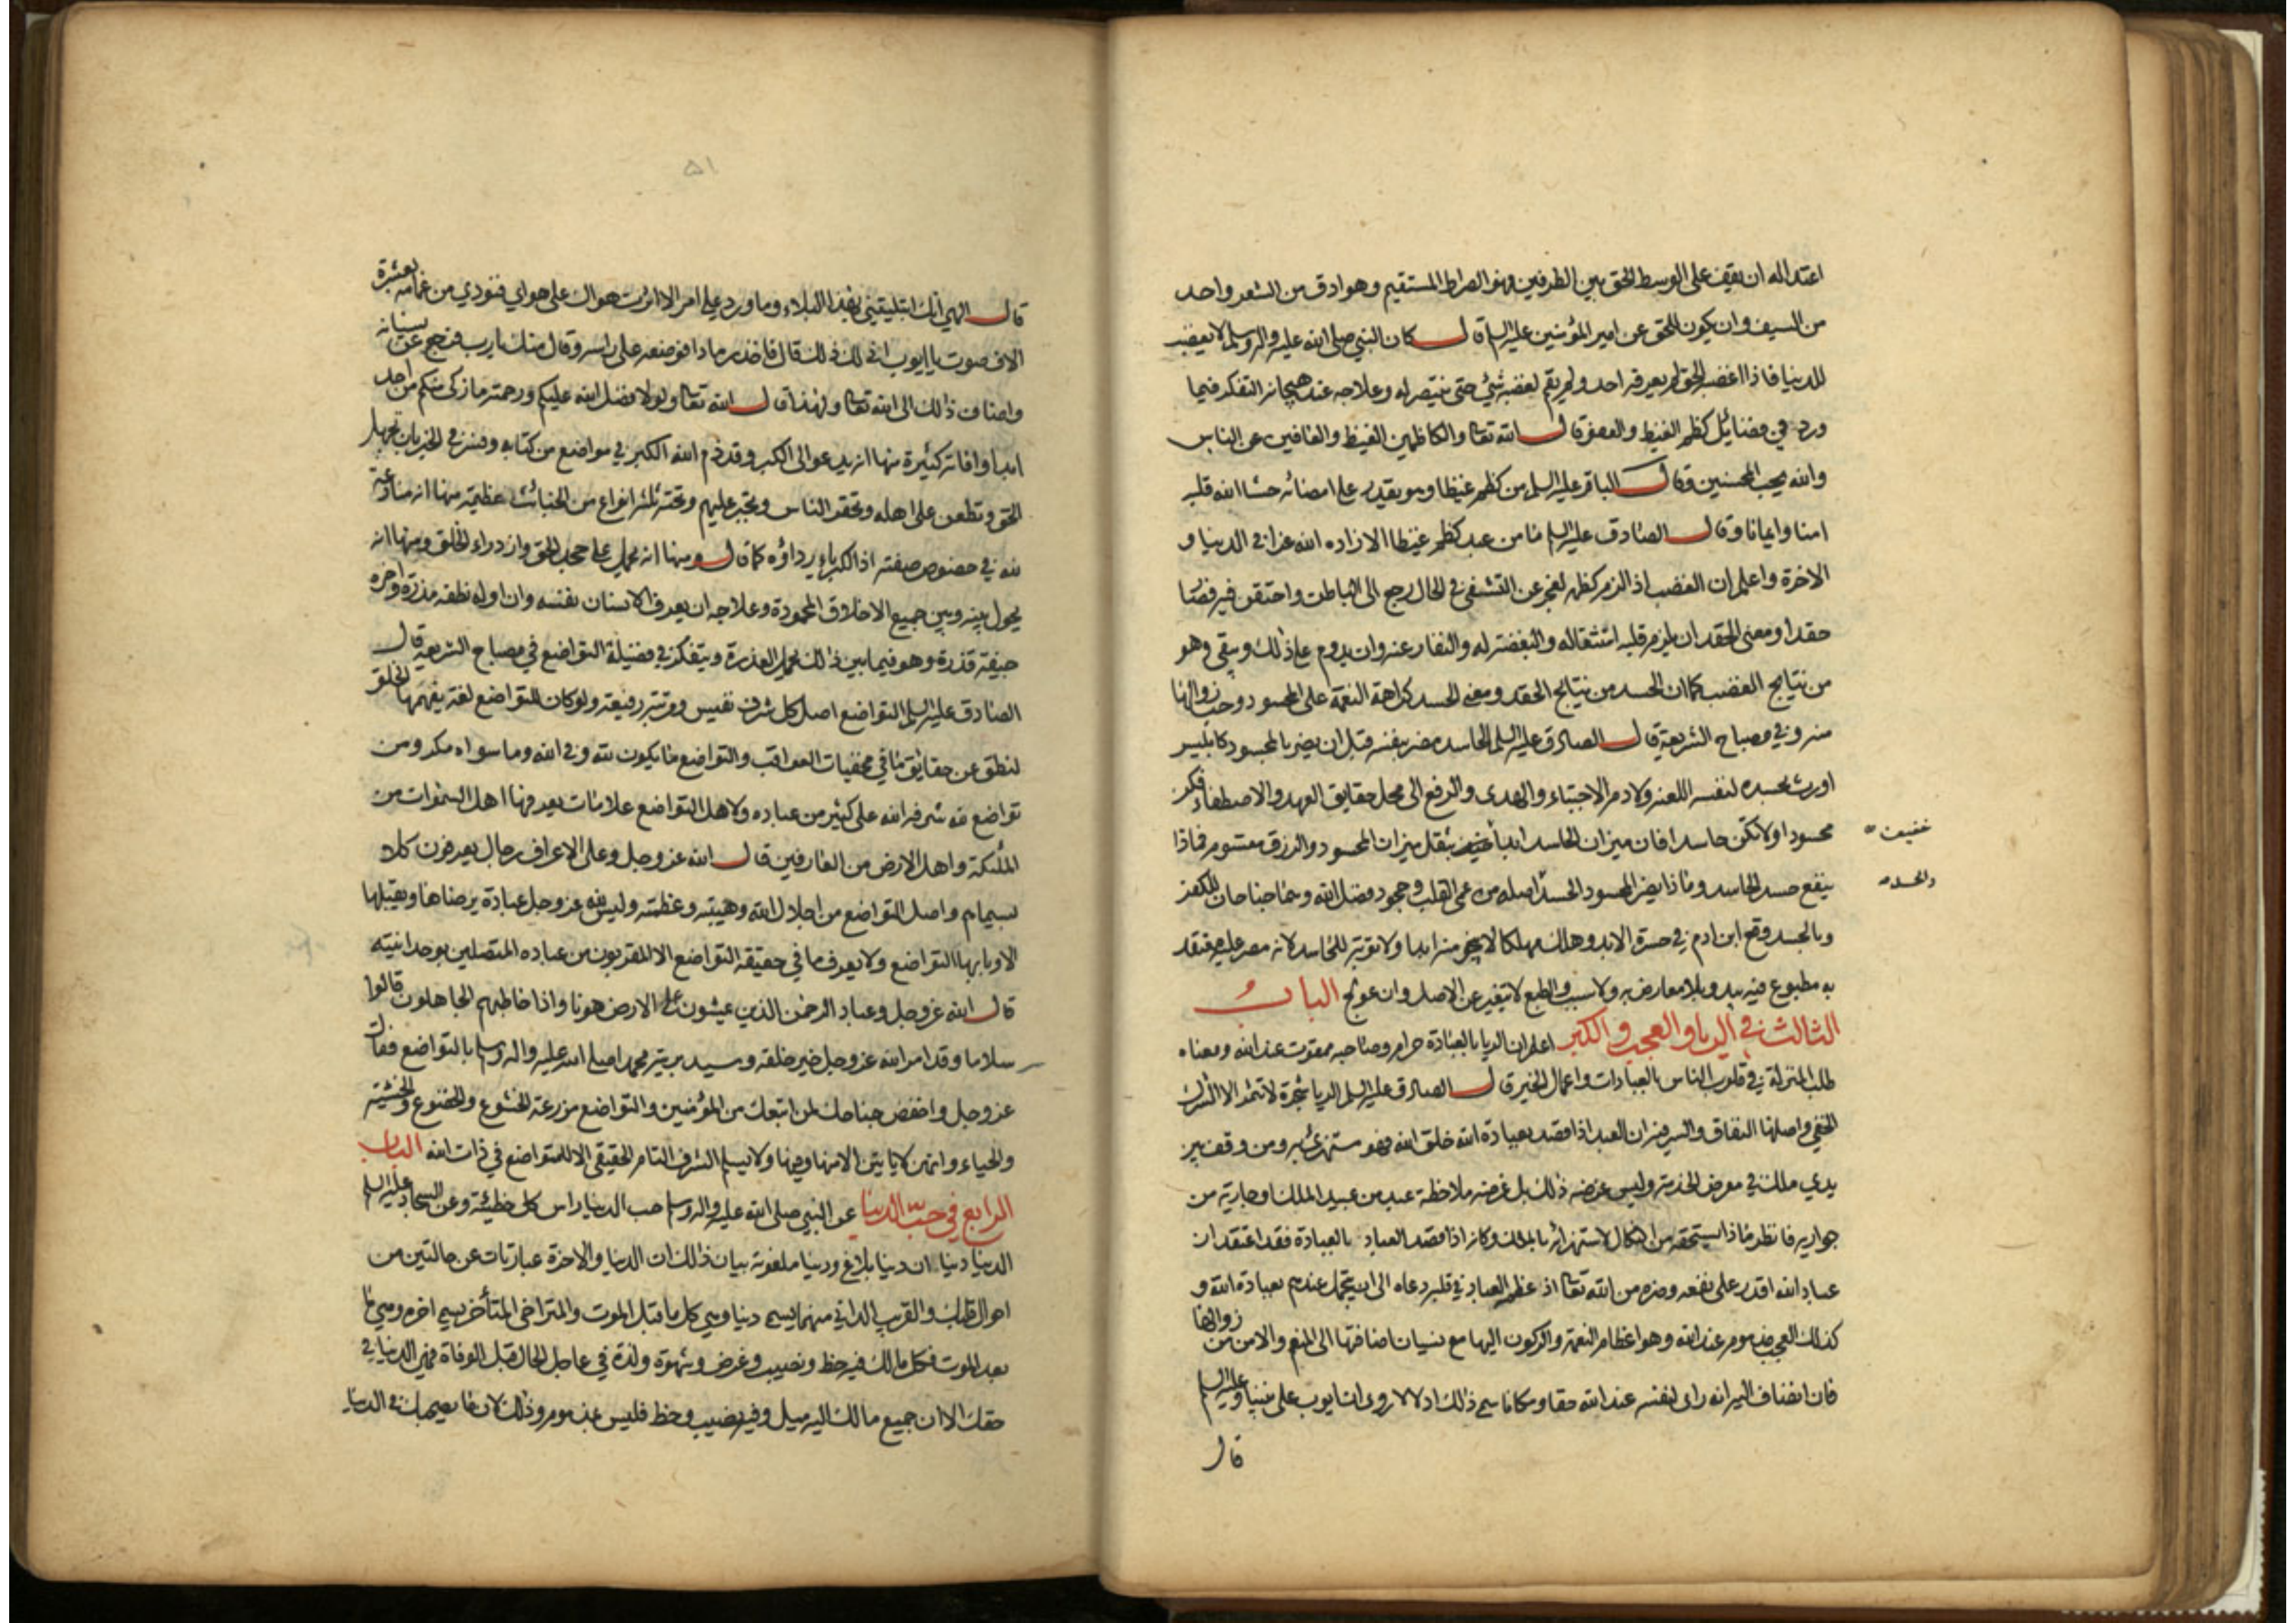 اعتداله ان يقف على الوسط الحق بين الطرفين وهو الصراط المستقيم وهو ادق من الشعر واحد
من السيف وان يكون للحق عن امير المؤمنين عليه السلم قال كان النبي صلى الله عليه واله وسلم لا يغضب
للدنيا فاذا اغضبه الحق لم يعرفه احد ولم يقم لغضبه شئ حتى ينتصر له وعلاجه عند هيجانه التفكر فيما
ورد في فضائل كظم الغيظ والعفو قال الله تعا والكاظمين الغيظ والعافين عن الناس
والله يحب المحسنين وقال الباقر عليه السلم من كظم غيظا وهو يقدر على امضائه حشا الله قلبه
امنا وايمانا وقال الصادق عليه السلم ما من عبد كظم غيظا الا زاده الله عزا في الدنيا و
الاخرة واعلم ان الغضب اذا لزم كظمه لعجز عن التشفي في الحال رجع الى الباطن واحتقن فيه فصار
حقدا ومعنى الحقد ان يلزم قلبه استثقاله والبغضة له والنفار عنه وان يدوم على ذلك ويبقى وهو
من نتايج الغضب كما ان الحسد من نتايج الحقد ومعنى الحسد كراهة النعمة على المحسود وحب زوالها
منه وفي مصباح الشريعة قال الصادق عليه السلم الحاسد مضر بنفسه قبل ان يضر بالمحسود كابليس
اورث بحسده لنفسه اللعنة ولادم الاجتباء والهدى والرفع الى محل حقايق العهد والاصطفاء فكن
محسودا ولا تكن حاسدا فان ميزان الحاسد ابدا خفيف بثقل ميزان المحسود والرزق مقسوم فماذا
خفيف
ينفع حسد الحاسد وماذا يضر المحسود الحسد اصله من عمى القلب وجحود فضل الله وهما جناحان للكفر
والحسد
وبالحسد وقع ابن ادم في حسرة الابد وهلك مهلكا لا ينجو منه ابدا ولا توبة للحاسد لانه مصر عليه معتقد
به مطبوع فيه يبدو بلا معارض به ولا سبب والطبع لا يتغير عن الاصل وان عولج الباب
الثالث في الريا والعجب والكبر اعلم ان الريا بالعبادة حرام وصاحبه ممقوت عند الله ومعناه
طلب المنزلة في قلوب الناس بالعبادات واعمال الخير قال الصادق عليه السلم الريا شجرة لا تثمر الا الشرك
الخفي واصلها النفاق والسر فيه ان العبد اذا قصد بعبادة الله خلق الله فهو مستهزئ به ومن وقف بين
يدي ملك في معرض الخدمة وليس غرضه ذلك بل غرضه ملاحظة عبد من عبيد الملك او جارية من
جواريه فانظر ماذا يستحقه من النكال لاستهزائه بالملك وكانه اذا قصد العباد بالعبادة فقد اعتقد ان
عباد الله اقدر على نفعه وضره من الله تعا اذ عظم العباد في قلبه دعاه الى ان يتجمل عندهم بعبادة الله و
كذلك العجب مذموم عند الله وهو اعظام النعمة والركون اليها مع نسيان اضافتها الى المنعم والامن من زوالها
فان انضاف اليه انه راى لنفسه عند الله حقا ومكانا سمي ذلك ادلالا روي ان ايوب على نبينا وعليه السلم
قال
۵۱
قال الهي انك ابتليتني بهذا البلاء وما ورد علي امر الا اثرت هواك على هواي فنودي من غمامة بعشرة
الاف صوت يا ايوب انى لك ذلك قال فاخذ رمادا فوضعه على راسه وقال منك يارب فرجع عن نسيانه
واضاف ذلك الى الله تعا ولهذا قال الله تعا ولولا فضل الله عليكم ورحمته ما زكى منكم من احد
ابدا وافاته كثيرة منها انه يدعو الى الكبر وقد ذم الله الكبر في مواضع من كتابه وفسر في الخبر بان تجهل
الحق وتطعن على اهله وتحقر الناس وتجبر عليهم وتحته ثلثة انواع من الخبائث عظيمة منها انه منازعة
لله في خصوص صفته اذ الكبرياء رداؤه كما قال ومنها انه يحمل على جحد الحق وازدراء الخلق ومنها انه
يحول بينه وبين جميع الاخلاق المحمودة وعلاجه ان يعرف الانسان نفسه وان اوله نطفة مذرة واخره
جيفة قذرة وهو فيما بين ذلك يحمل العذرة ويتفكر في فضيلة التواضع في مصباح الشريعة قال
الصادق عليه السلم التواضع اصل كل شرف نفيس ومرتبة رفيعة ولو كان للتواضع لغة يفهمها الخلق
لنطق عن حقايق ما في مخفيات العواقب والتواضع ما يكون لله وفي الله وما سواه مكر ومن
تواضع لله شرفه الله على كثير من عباده ولاهل التواضع علامات يعرفها اهل السموات من
الملئكة واهل الارض من العارفين قال الله عز وجل وعلى الاعراف رجال يعرفون كلا
بسيماهم واصل التواضع من اجلال الله وهيبته وعظمته وليس لله عز وجل عبادة يرضاها ويقبلها
الا وبابها التواضع ولا يعرف ما في حقيقة التواضع الا المقربون من عباده المتصلين بوحدانيته
قال الله عز وجل وعباد الرحمن الذين يمشون على الارض هونا واذا خاطبهم الجاهلون قالوا
سلاما وقد امر الله عز وجل خير خلقه وسيد بريته محمدا صلى الله عليه واله وسلم بالتواضع فقال
عز وجل واخفض جناحك لمن اتبعك من المؤمنين والتواضع مزرعة الخشوع والخضوع والخشية
والحياء وانهن لا ياتين الا منها وفيها ولا يسلم الشرف التام الحقيقي الا للمتواضع في ذات الله الباب
الرابع في حب الدنيا عن النبي صلى الله عليه واله وسلم حب الدنيا راس كل خطيئة وعن السجاد عليه السلم
الدنيا دنيا ان دنيا بلاغ ودنيا ملعونة بيان ذلك ان الدنيا والاخرة عبارتان عن حالتين من
احوال قلبك والقريب الداني منهما يسمى دنيا وهي كل ما قبل الموت والمتراخي المتاخر يسمى اخرة وهي ما
بعد الموت فكل ما لك فيه حظ ونصيب وغرض وشهوة ولذة في عاجل الحال قبل الوفاة فهي الدنيا في
حقك الا ان جميع ما لك اليه ميل وفيه نصيب وحظ فليس بمذموم وذلك لان ما يصحبك في الدنيا